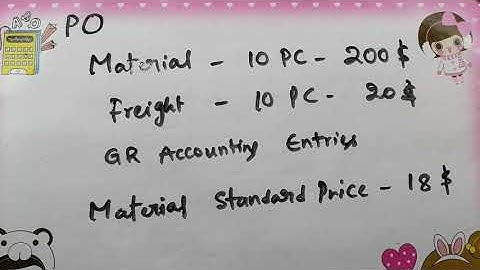 PO
Material - 10 PC - 200$
Freight - 10 PC - 20$
GR Accounting Entries
Material Standard Price - 18$